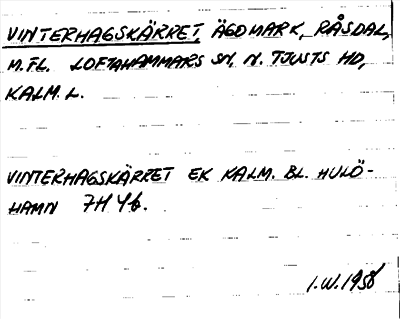 VINTERHAGSKÄRRET, ÄGOMARK, RÅSDAL,
M.FL. LOFTAHAMMARS SN, N. TJUSTS HD,
KALM. L.
VINTERHAGSKÄRRET EK KALM. BL. HULÖ-
HAMN 7H 4b.
I.W. 1958